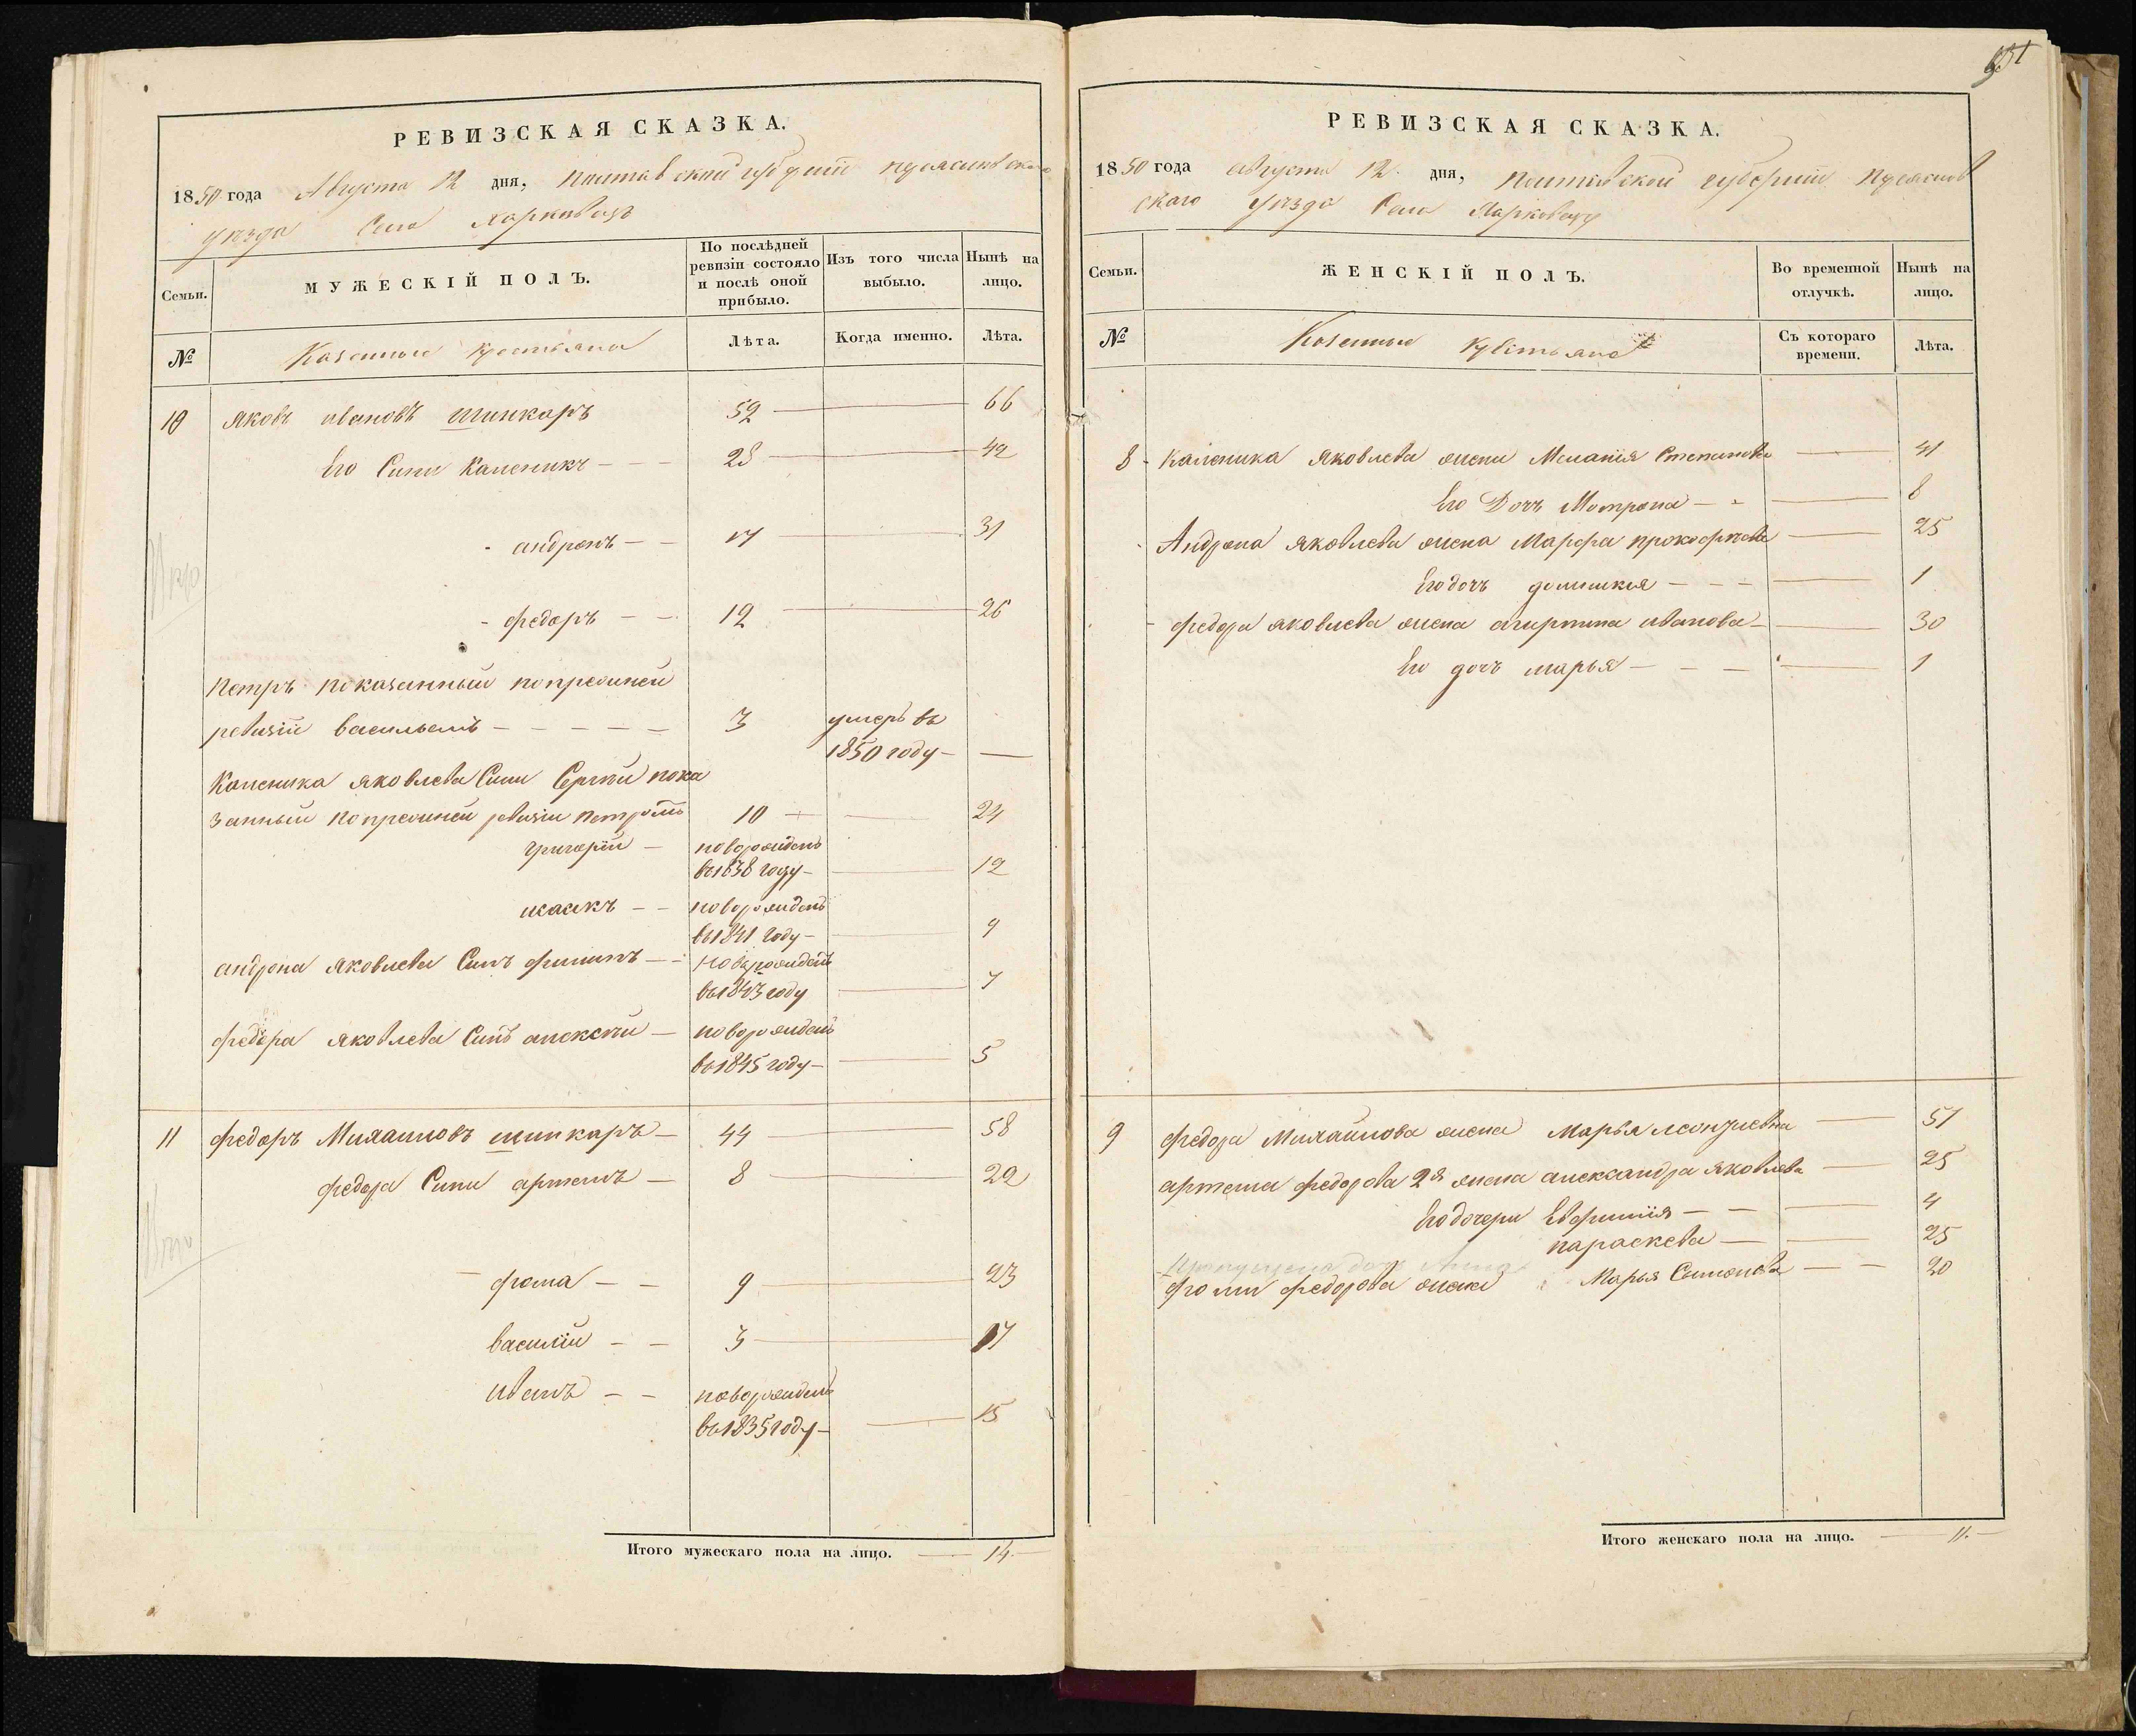 651
РЕВИЗСКАЯ СКАЗКА.
1850 года Августа 12 дня, Полтавской губернии Пирятинского
уезда Села Харковець
Семьи.
МУЖЕСКІЙ ПОЛЪ.
По послѣдней ревизіи состояло и послѣ оной прибыло.
Изъ того числа выбыло.
Нынѣ на лицо.
№
Казенные крестьяне
Лѣта.
Когда именно.
Лѣта.
10 Яковъ ивановъ шинкарь 52 — 66
Его Сини Каленикъ — 28 — 42
андронъ — 17 — 31
федоръ — 12 — 26
Петръ показанный попрежней
ревизіи васильемъ — 3 умеръ въ
1850 году —
Каленика яковлева Сини Сергѣй пока
занный попрежней ревизіи петромъ 10 — 24
григорій — новорожденъ
въ 1838 году — 12
исаакъ — новорожденъ
въ 1841 году — 9
андрона яковлева Синъ филипъ — новорожденъ
въ 1843 году — 7
федора яковлева Синъ алексѣй — новорожденъ
въ 1845 году — 5
11 федоръ Михаиловъ шинкарь — 44 — 58
федора Сини артемъ — 8 — 22
фома — 9 — 23
василій — 3 — 17
иванъ — новорожденъ
въ 1835 году — 15
Итого мужескаго пола на лицо. — 14.
РЕВИЗСКАЯ СКАЗКА.
1850 года августа 12 дня, Полтавской губерніи
ского уезда Села Харковець
Семьи.
ЖЕНСКІЙ ПОЛЪ.
Во временной отлучкѣ.
Нынѣ на лицо.
№
Казенные крестьяне
Съ котораго времени.
Лѣта.
8 Каленика Яковлева жена Меланія Степанова — 41
Его Дочъ Мотрона — 8
Андрона яковлева жена Марфа прокофьева — 25
Его дочъ домникія — 1
федора яковлева жена агирпина иванова — 30
Его дочъ марья — 1
9 федора Михаилова жена Марья леонтіевна — 51
артема федорова 2я жена александра яковлева — 25
Его дочери Евфимія — 4
параскева — 25
дочь Анна
фоми федорова жена Марья Симонова — 20
Итого женскаго пола на лицо. — 11.